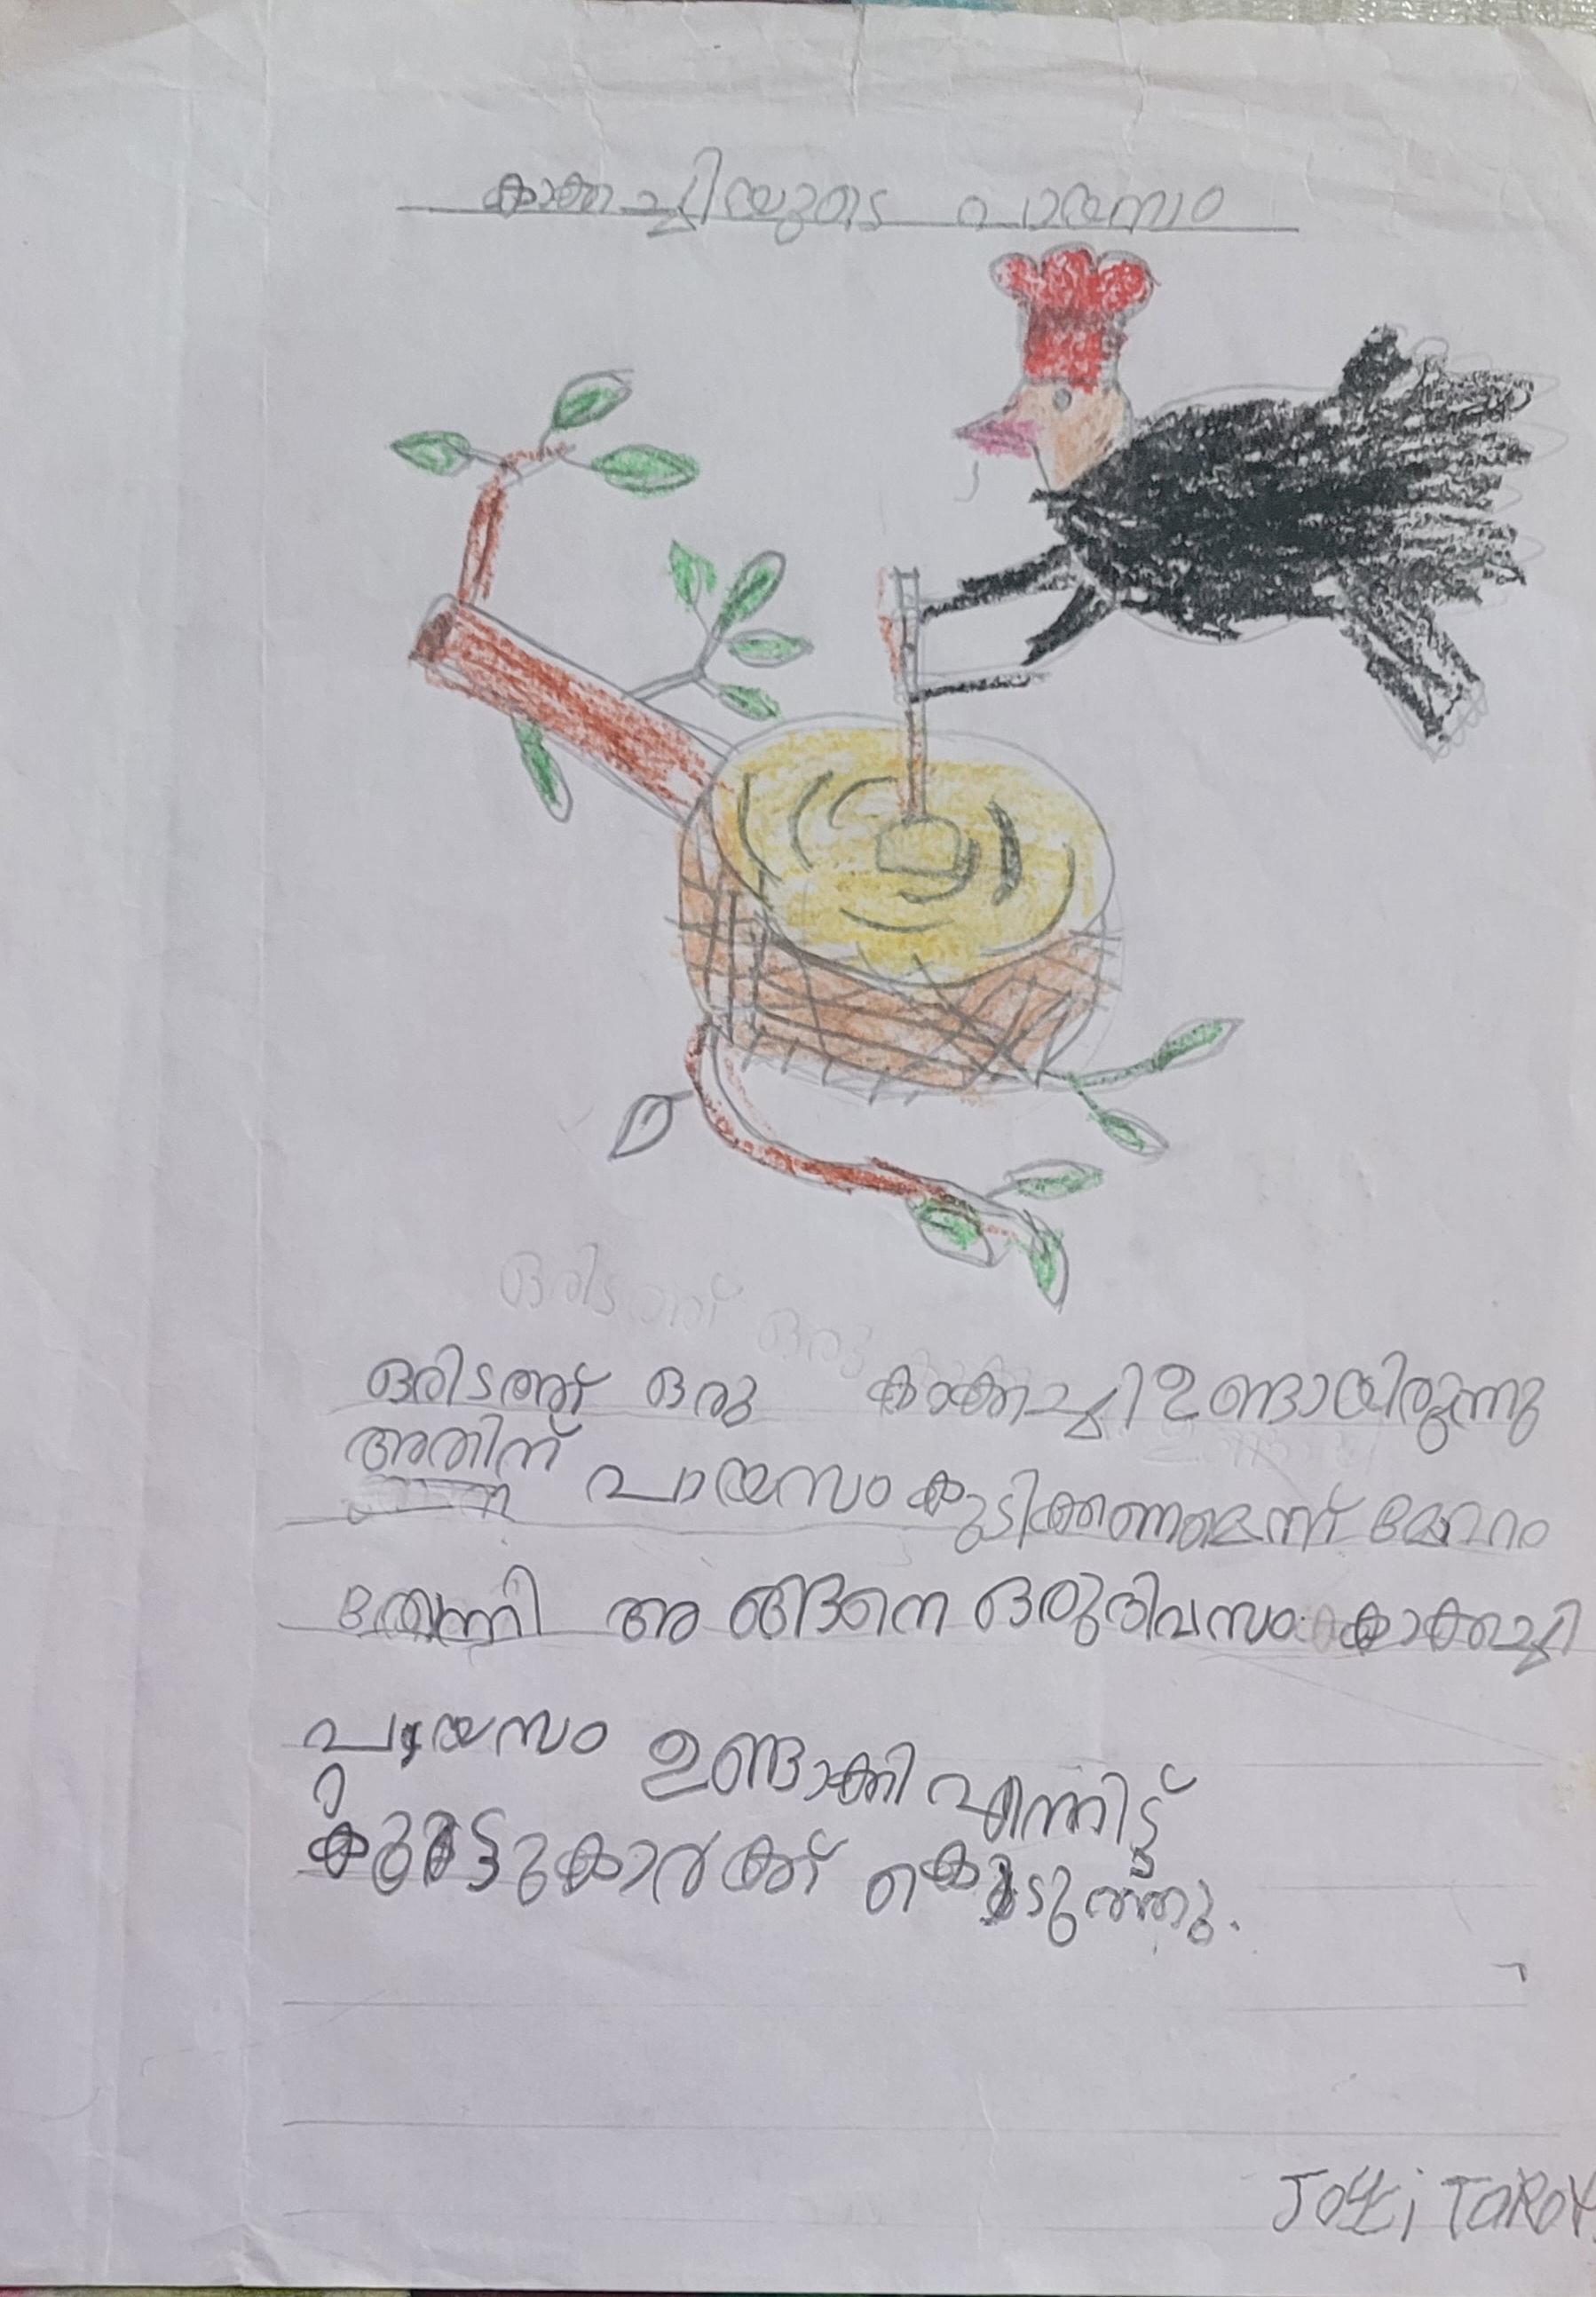 കാക്കച്ചിയുടെ പായസം
ഒരിടത്ത് ഒരു കാക്കച്ചി ഉണ്ടായിരുന്നു
അതിന് പായസം കുടിക്കണമെന്ന് മോഹം
തോന്നി അങ്ങനെ ഒരുദിവസം കാക്കച്ചി
പായസം ഉണ്ടാക്കി എന്നിട്ട്
കൂട്ടുകാർക്ക് കൊടുത്തു.